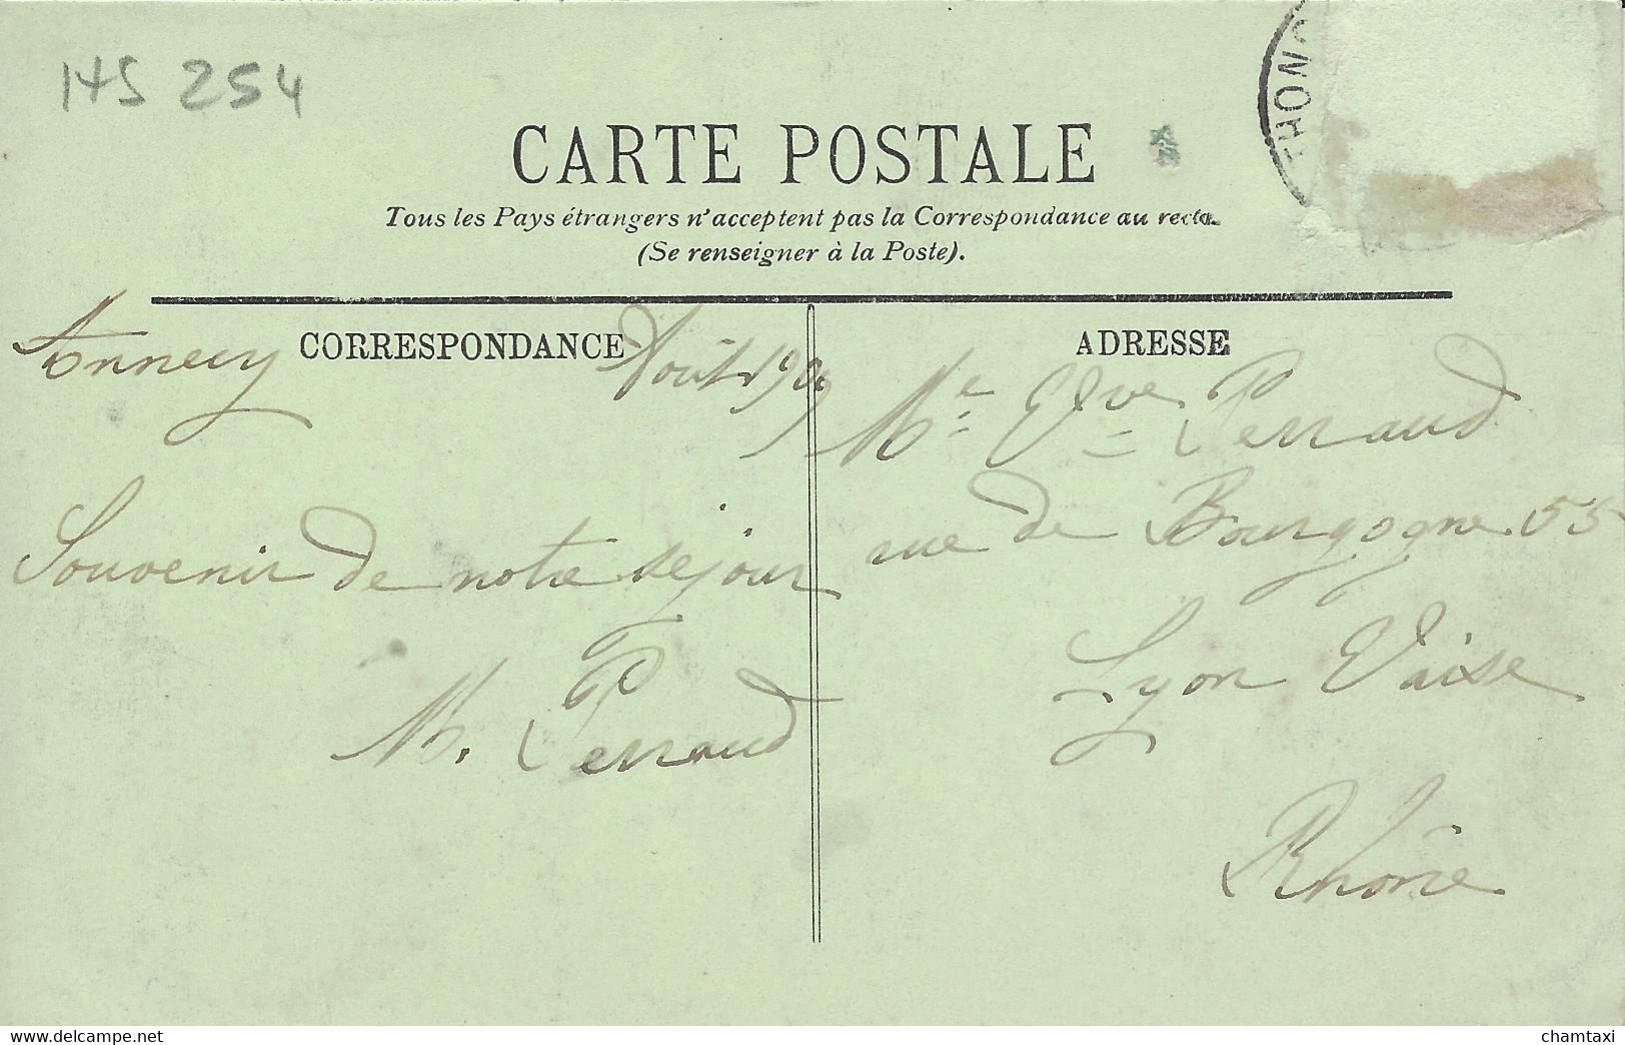 HS 254
THON
CARTE POSTALE
Tous les Pays étrangers n'acceptent pas la Correspondance au recto.
(Se renseigner à la Poste).
CORRESPONDANCE
Annecy Août 1909
Souvenir de notre séjour
M. Perraud
ADRESSE
Me Vve Perraud
rue de Bourgogne 55
Lyon Vaise
Rhône
www.delcampe.net
chamtaxi